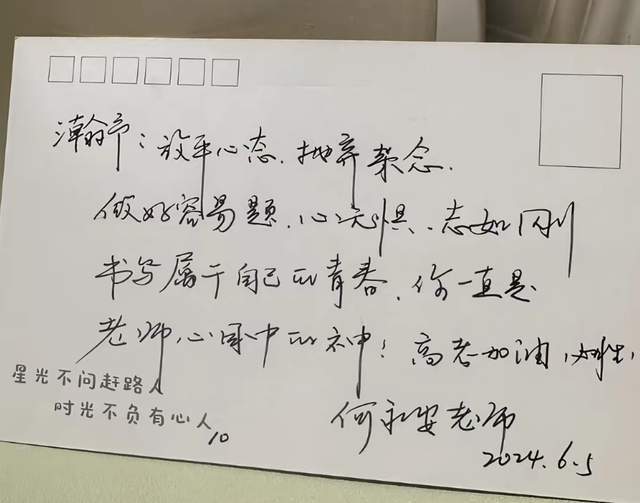 瀚予：放平心态、抛弃杂念.
做好容易题、心无惧、志如刚
书写属于自己的青春、你一直是
老师心目中的神！高考加油，
星光不问赶路人
时光不负有心人
10
何永安老师
2024.6.5